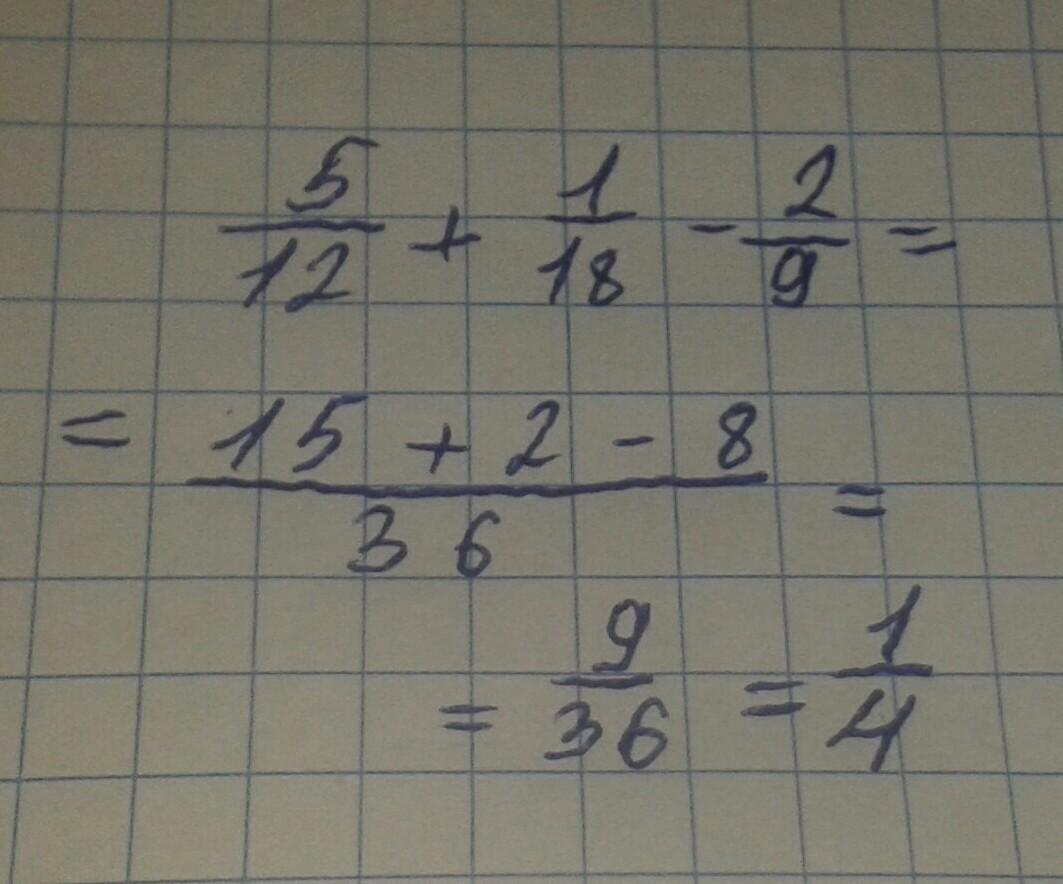 5/12 + 1/18 - 2/9 =
= (15 + 2 - 8)/36 =
= 9/36 = 1/4